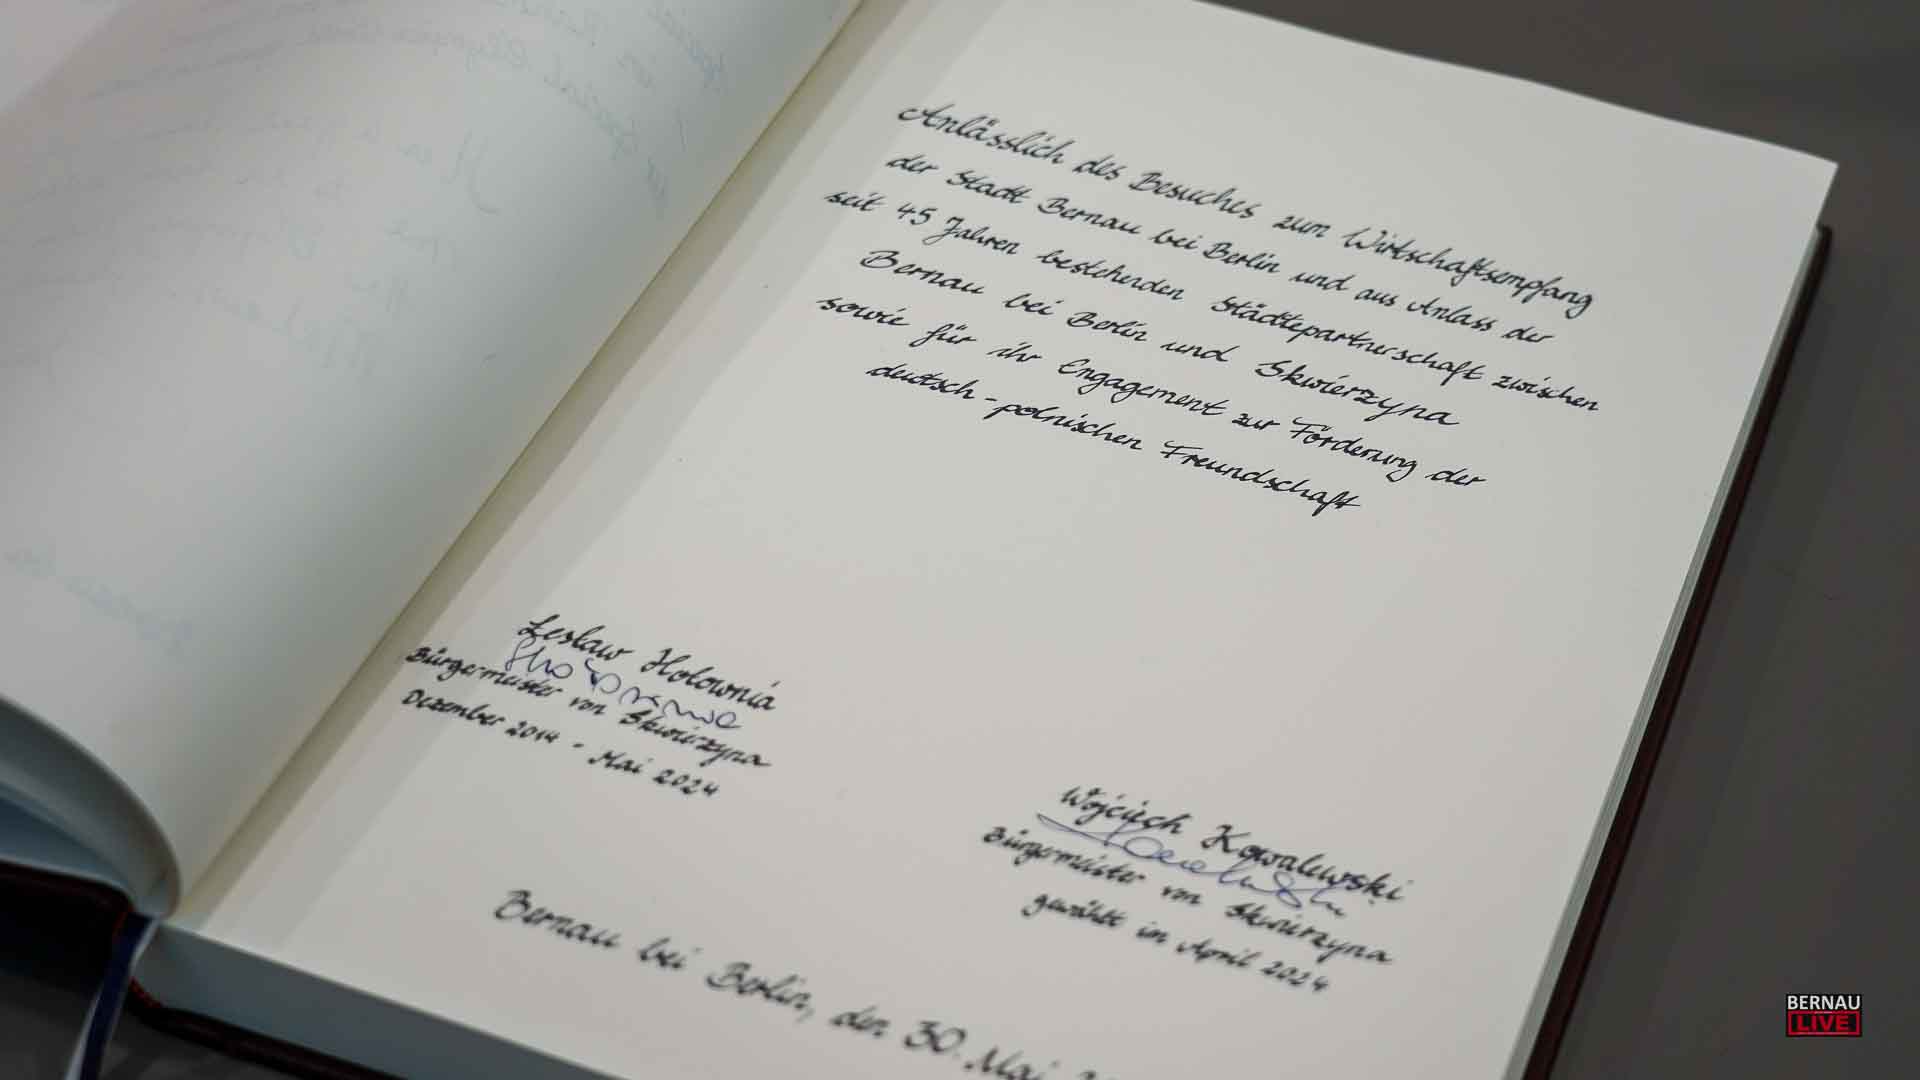 Anlässlich des Besuches zum Wirtschaftsempfang
der Stadt Bernau bei Berlin und aus Anlass der
seit 45 Jahren bestehenden Städtepartnerschaft zwischen
Bernau bei Berlin und Skwierzyna
sowie für ihr Engagement zur Förderung der
deutsch-polnischen Freundschaft
Lesław Hołownia
Bürgermeister von Skwierzyna
Dezember 2014 - Mai 2024
Wojciech Kowalewski
Bürgermeister von Skwierzyna
gewählt im April 2024
Bernau bei Berlin, den 30. Mai
BERNAU
LIVE